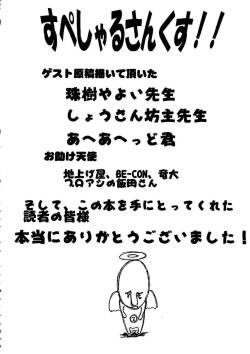 すぺしゃるさんくす!!
ゲスト原稿描いて頂いた
珠樹やよい先生
しょうさん坊主先生
あへあへっど君
お助け天使
地上げ屋、BE-CON、竜大
プロアシの飯田さん
そして、この本を手にとってくれた
読者の皆様
本当にありがとうございました!